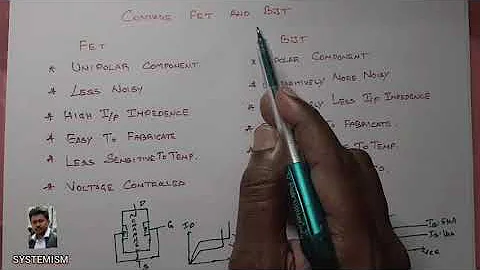 COMPARE FET AND BJT
FET
* UNIPOLAR COMPONENT
* LESS NOISY
* HIGH I/P IMPEDENCE
* EASY TO FABRICATE
* LESS SENSITIVE TO TEMP.
* VOLTAGE CONTROLLED
D
G
S
ID
BJT
* POLAR COMPONENT
MORE NOISY
LESS I/P IMPEDENCE
TO FABRICATE
TO TEMP.
VCE
SYSTEMISM